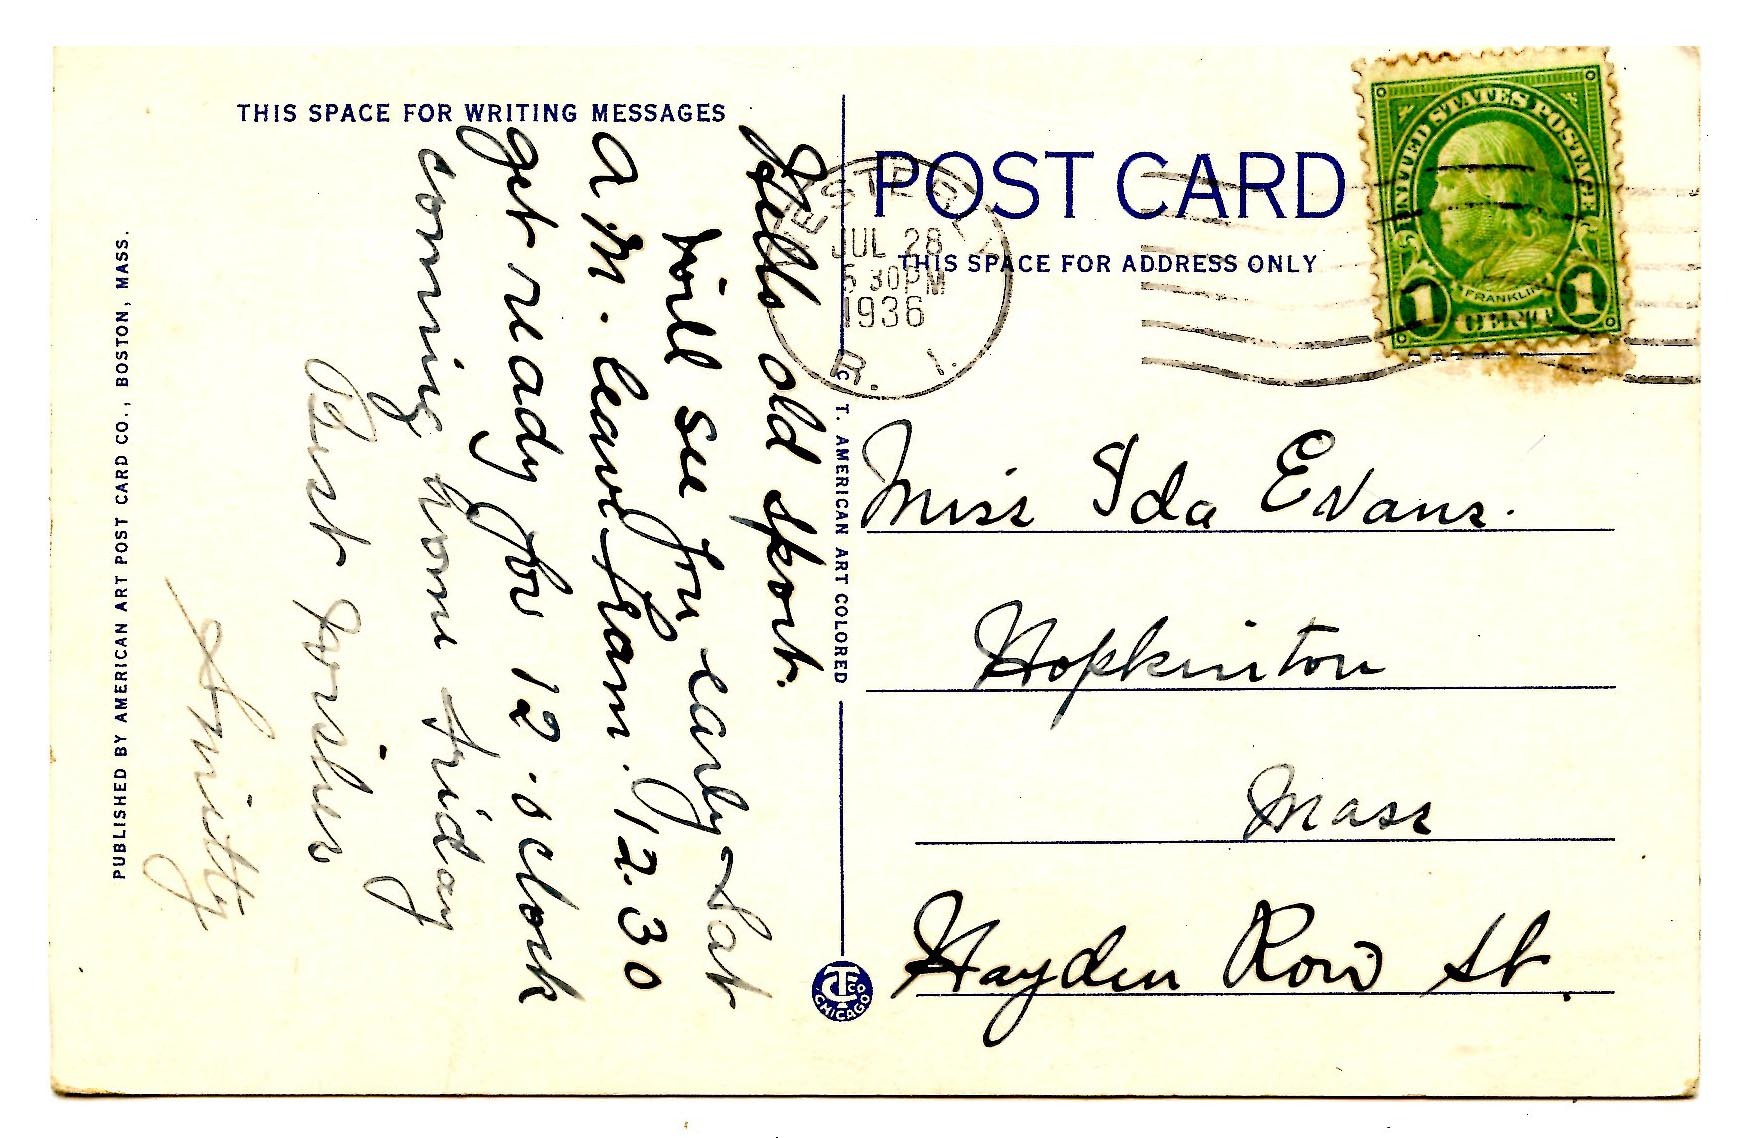 THIS SPACE FOR WRITING MESSAGES
Hello old sport.
will see you early Sat
A.M. leave Fram. 12.30
get ready for 12.oclock
coming home Friday
Best Wishes
Smitty
PUBLISHED BY AMERICAN ART POST CARD CO., BOSTON, MASS.
C. T. AMERICAN ART COLORED
CTCO
CHICAGO
POST CARD
THIS SPACE FOR ADDRESS ONLY
WESTERLY
JUL 28
5 30PM
1936
R. I.
UNITED STATES POSTAGE
FRANKLIN
1 CENT 1
Miss Ida Evans.
Hopkinton
Mass
Hayden Row St.